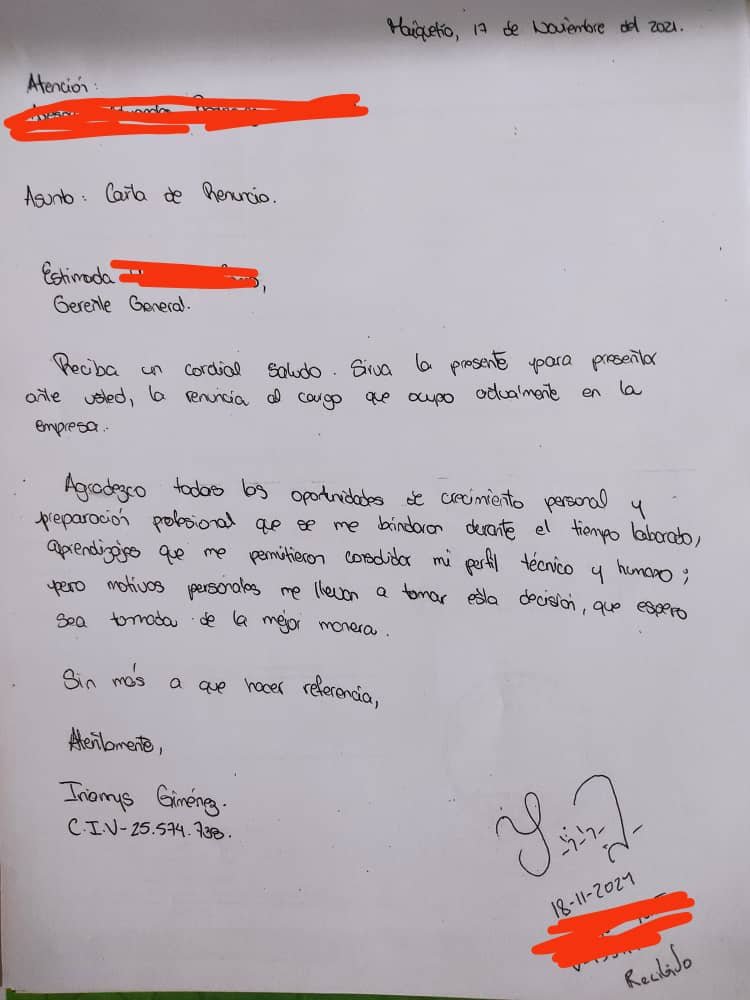 Maiquetía, 17 de Noviembre del 2021.
Atención:
Asunto: Carta de Renuncia.
Estimada
Gerente General.
Reciba un cordial saludo. Sirva la presente para presentar
ante usted, la renuncia al cargo que ocupo actualmente en la
empresa.
Agradezco todas las oportunidades de crecimiento personal y
preparación profesional que se me brindaron durante el tiempo laborado,
aprendizajes que me permitieron consolidar mi perfil técnico y humano;
pero motivos personales me llevan a tomar esta decisión, que espero
sea tomada de la mejor manera.
Sin más a que hacer referencia,
Atentamente,
Iriamys Giménez.
C.I.V-25.574.738.
18-11-2021
Recibido